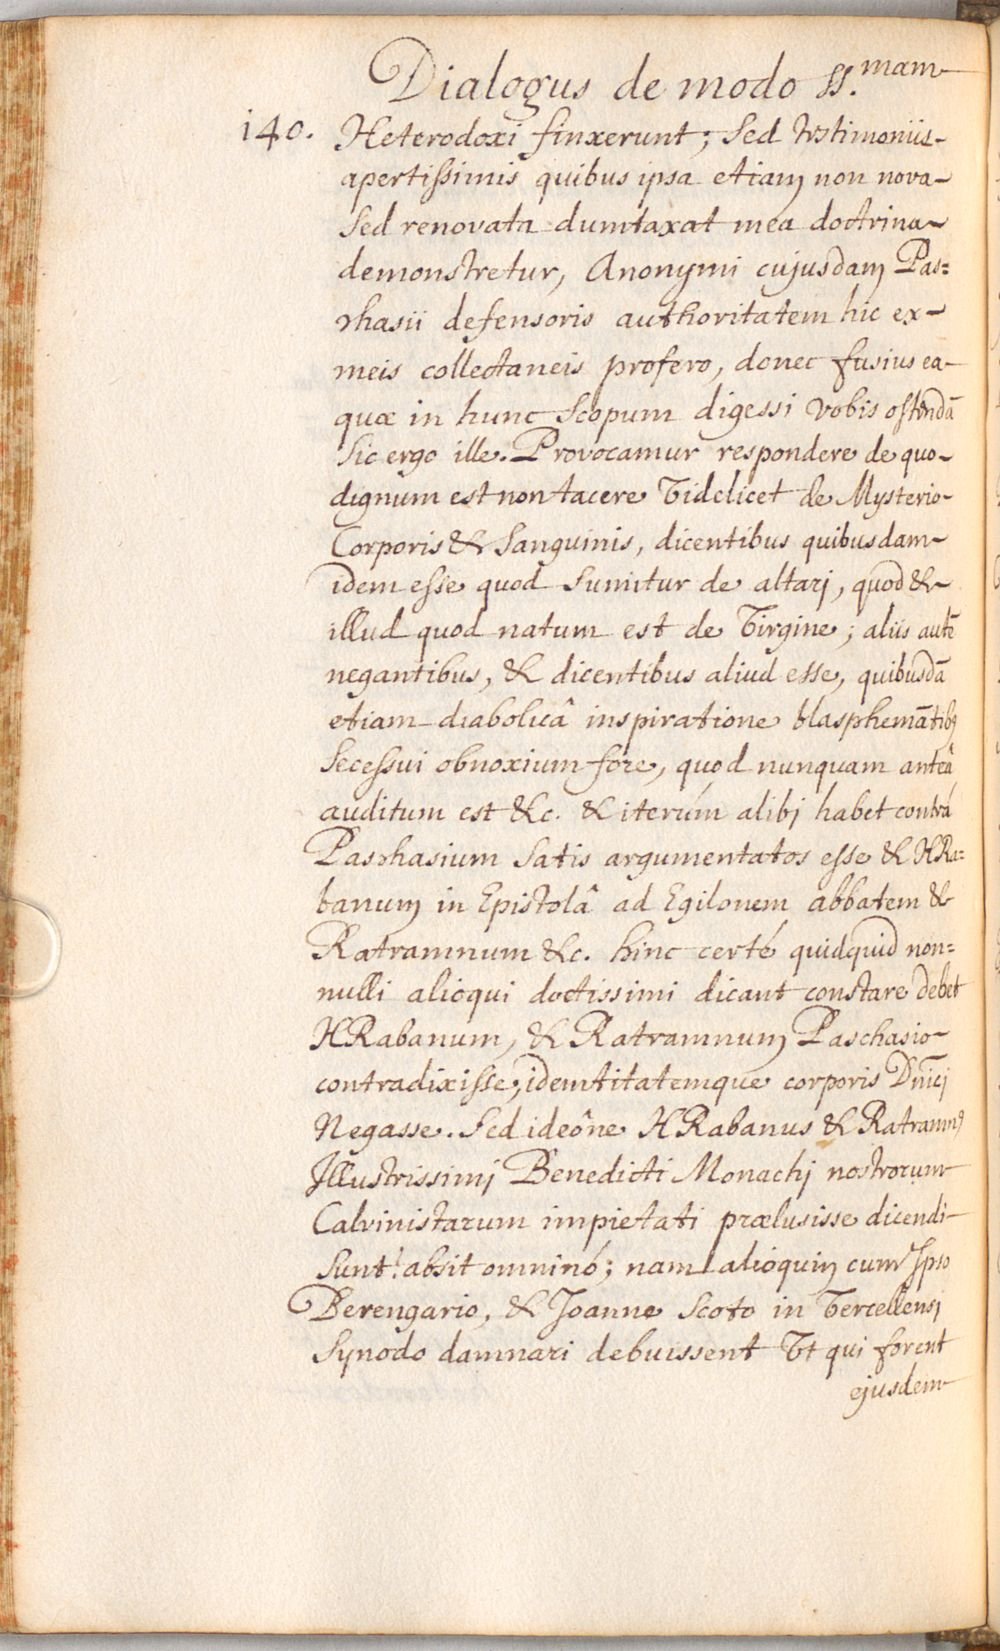 Dialogus de modo ss.mam
140. Heterodoxi finxerunt; sed testimoniis
apertissimis quibus ipsa etiam non nova
sed renovata dumtaxat mea doctrina
demonstretur, Anonymi cujusdam Pas=
chasii defensoris authoritatem hic ex
meis collectaneis profero, donec fusius ea
quæ in hunc scopum digessi vobis ostendā
sic ergo ille. Provocamur respondere de quo
dignum est non tacere videlicet de Mysterio
Corporis & Sanguinis, dicentibus quibusdam
idem esse quod sumitur de altari, quod &
illud quod natum est de Virgine; aliis autē
negantibus, & dicentibus aliud esse, quibusdā
etiam diabolicâ inspiratione blasphemātibꝫ
secessui obnoxium fore, quod nunquam anteâ
auditum est &c. & iterúm alibj habet contrá
Paschasium satis argumentatos esse & HRa=
banum in Epistolâ ad Egilonem abbatem &
Ratramnum &c. hinc certé quidquid non=
nulli alioqui doctissimi dicant constare debet
HRabanum, & Ratramnum Paschasio
contradixisse, idemtitatemque corporis Dn̄icj
Negasse. Sed ideône HRabanus & Ratramnꝰ
Jllustrissimj Benedicti Monachj nostrorum
Calvinistarum impietati prælusisse dicendi
sunt? absit omninó; nam alioquin cum Jpso
Berengario, & Joanne Scoto in Vercellensj
Synodo damnari debuissent Vt qui forent
ejusdem